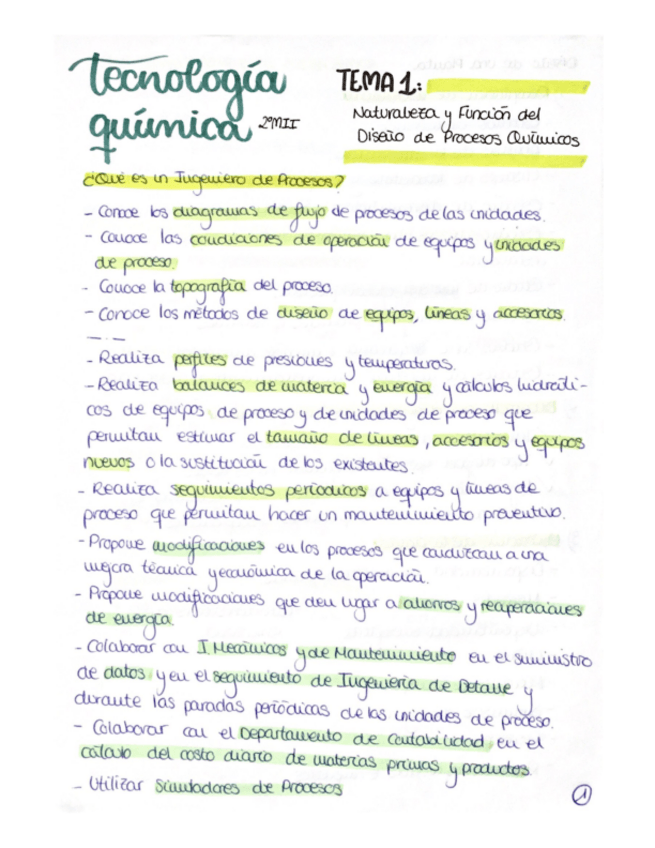 Tecnología
química 2ºMII
TEMA 1:
Naturaleza y Función del
Diseño de Procesos Químicos
¿Qué es un Ingeniero de Procesos?
- Conoce los diagramas de flujo de procesos de las unidades.
- Conoce las condiciones de operación de equipos y unidades
de proceso.
- Conoce la topografía del proceso.
- Conoce los métodos de diseño de equipos, líneas y accesorios.
- Realiza perfiles de presiones y temperaturas.
- Realiza balances de materia y energía y cálculos hidráuli-
cos de equipos, de proceso y de unidades de proceso que
permitan estimar el tamaño de líneas, accesorios y equipos
nuevos o la sustitución de los existentes.
- Realiza seguimientos periódicos a equipos y líneas de
proceso que permitan hacer un mantenimiento preventivo.
- Propone modificaciones en los procesos que conduzcan a una
mejora técnica y económica de la operación.
- Propone modificaciones que den lugar a ahorros y recuperaciones
de energía.
- Colaborar con I. Mecánicos y de Mantenimiento en el suministro
de datos y en el seguimiento de Ingeniería de Detalle y
durante las paradas periódicas de las unidades de proceso.
- Colaborar con el Departamento de Contabilidad, en el
cálculo del costo diario de materias primas y productos.
- Utilizar Simuladores de Procesos
1